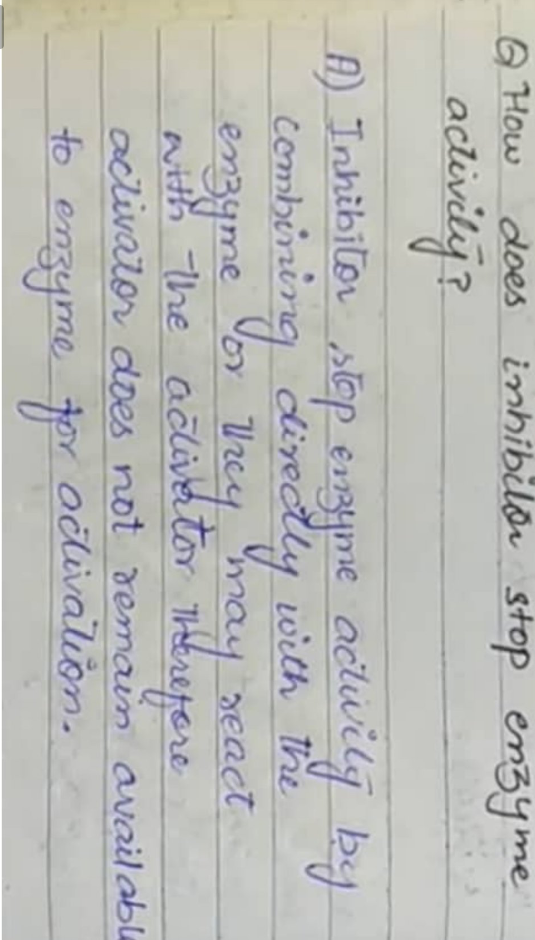 Q How does inhibitor stop enzyme
activity?
A) Inhibitor stop enzyme activity by
combining directly with the
enzyme or they may react
with the activator therefore
activator does not remain availabl
to enzyme for activation.